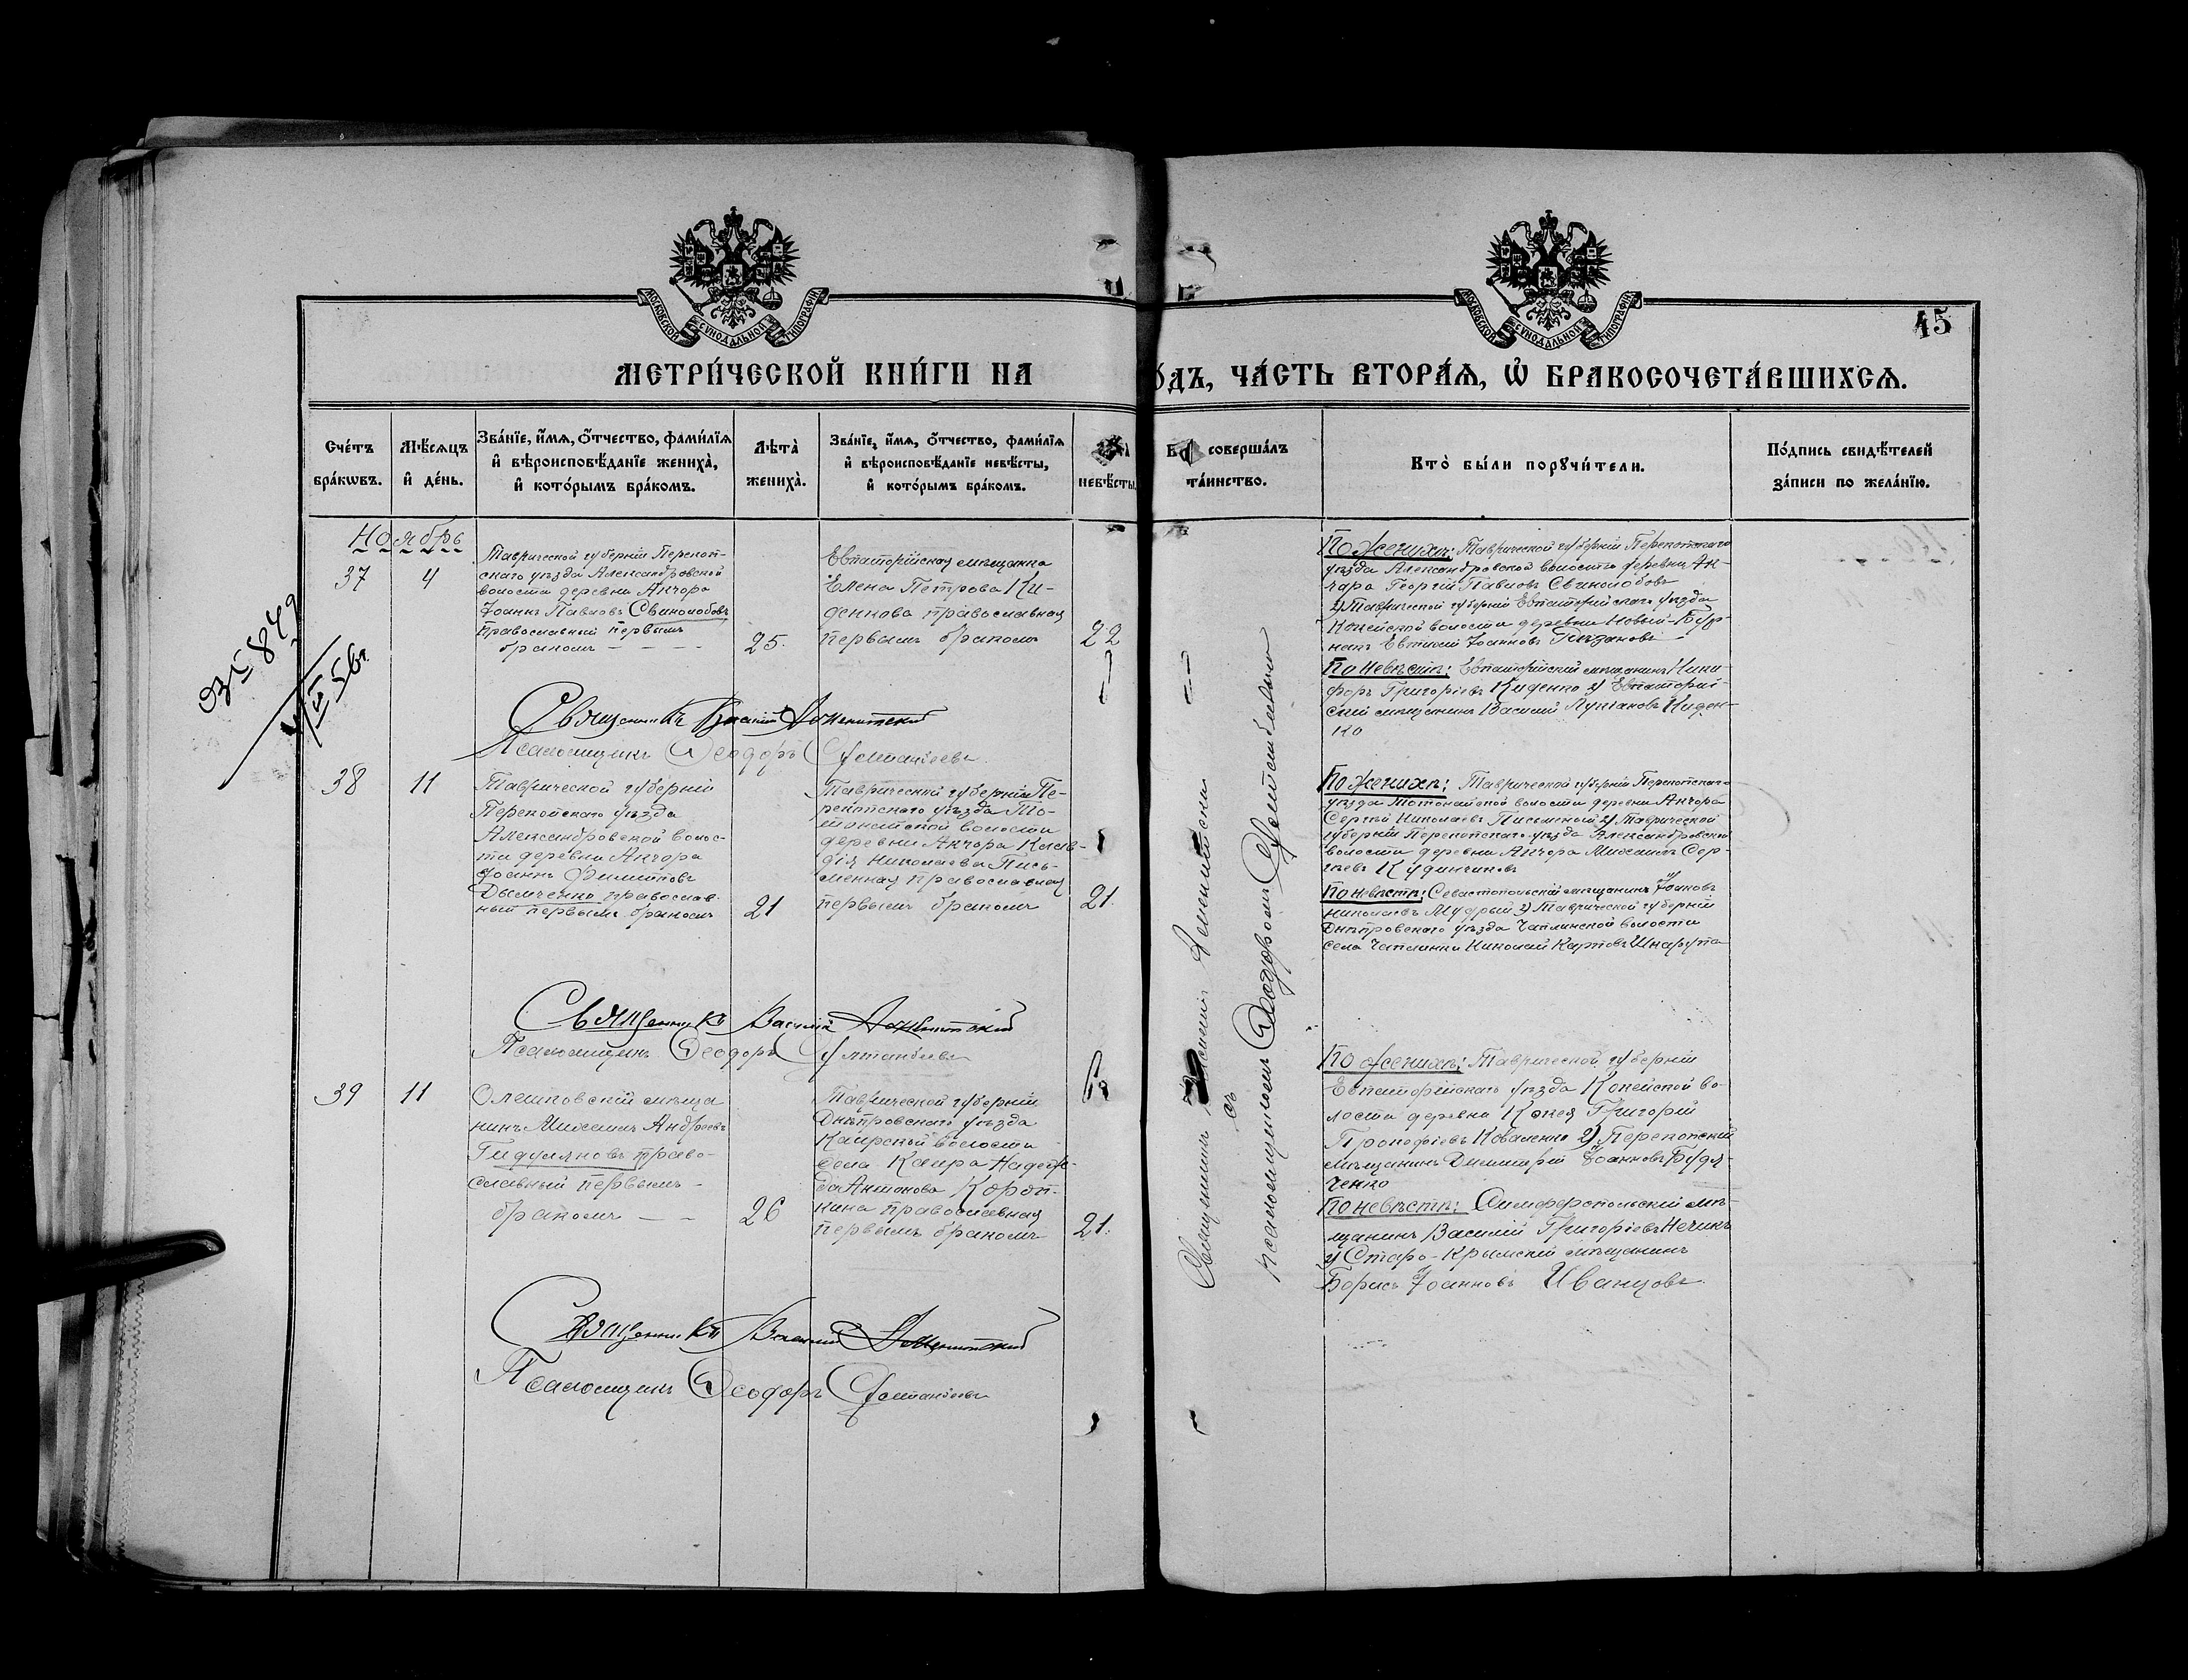 МОСКОВСКОЙ СУНОДАЛЬНОЙ ТИПОГРАФІИ
МОСКОВСКОЙ СУНОДАЛЬНОЙ ТИПОГРАФІИ
45
МЕТРИ́ЧЕСКОЙ КНИ́ГИ НА
О́ДЪ, ЧА́СТЬ ВТОРА́Я, Ѡ БРАКОСОЧЕТА́ВШИХСЯ.
Сче́тъ
бра́кωвъ.
Мѣ́сяцъ
и҆ де́нь.
Зва́нїе, и҆́мя, о҆́тчество, фами́лїя
и҆ вѣроисповѣ́данїе жениха̀,
и҆ кото́рымъ бра́комъ.
Лѣта̀
жениха̀.
Зва́нїе, и҆́мя, о҆́тчество, фами́лїя
и҆ вѣроисповѣ́данїе невѣ́сты,
и҆ кото́рымъ бра́комъ.
невѣ́сты
соверша́лъ
та́инство.
Кто̀ бы́ли порꙋчи́тели.
По́дпись свидѣ́телей
за́писи по жела́нїю.
Ноябрь
37
4
Таврической губерніи Перекоп-
скаго уѣзда Александровской
волости деревни Анчора
Іоаннъ Павловъ Свинолобовъ
православный первымъ
бракомъ
25.
Евпаторійская мѣщанка
Елена Петрова Ки-
денкова православная
первымъ бракомъ
22
По женихѣ: Таврической губерніи Перекопскаго
уѣзда Александровской волости деревни Ан-
чара Георгій Павловъ Свинолобовъ
2) Таврической губерніи Евпаторійскаго уѣзда
волости деревни Новый-Бур-
Евтихій Іоанновъ
По невѣстѣ: Евпаторійскій мѣщанинъ Ники-
форъ Григорьевъ Киденко 2) Евпаторій-
скій мѣщанинъ Василій Киден-
ко
Священникъ Василій
Псаломщикъ Ѳеодоръ
38
11
Таврической губерніи
Перекопскаго уѣзда
Александровской волос-
ти деревни Анчора
Іоаннъ Филипповъ
Дымченко православ-
ный первымъ бракомъ
21
Таврической губерніи Пе-
рекопскаго уѣзда То-
волости
деревни Анчора Клав-
дія Николаева Пись-
менная православная
первымъ бракомъ
21.
По женихѣ: Таврической губерніи Перекопскаго
уѣзда волости деревни Анчора
Сергѣй Николаевъ Письменный 2) Таврической
губерніи Перекопскаго уѣзда Александровской
волости деревни Анчора Михаилъ Сер-
гѣевъ
По невѣстѣ: Севастопольскій мѣщанинъ Іоаннъ
Николаевъ Мудрый 2) Таврической губерніи
Днѣпровскаго уѣзда Чаплинской волости
села Чаплинки Николай Карповъ Шкарупа
Священникъ Василій
Псаломщикъ Ѳеодоръ
39
11
Олешковскій мѣща
нинъ Михаилъ Андреевъ
Гидуляновъ право-
славный первымъ
бракомъ
26
Таврической губерніи
Днѣпровскаго уѣзда
Каирской волости
села Каира Надеж-
да Антонова Короп-
кина православная
первымъ бракомъ
21.
По женихѣ: Таврической губерніи
Евпаторійскаго уѣзда во-
лости деревни Григорій
Прокофіевъ Коваленко 2) Перекопскій
мѣщанинъ Димитрій Іоанновъ Будя-
ченко
По невѣстѣ: Симферопольскій мѣ-
щанинъ Василій Григорьевъ
2) Старо-Крымскій мѣщанинъ
Борисъ Іоанновъ Иванцовъ.
Священникъ Василій
Псаломщикъ Ѳеодоръ
Священникъ Василій
съ
псаломщикомъ Ѳеодоромъ